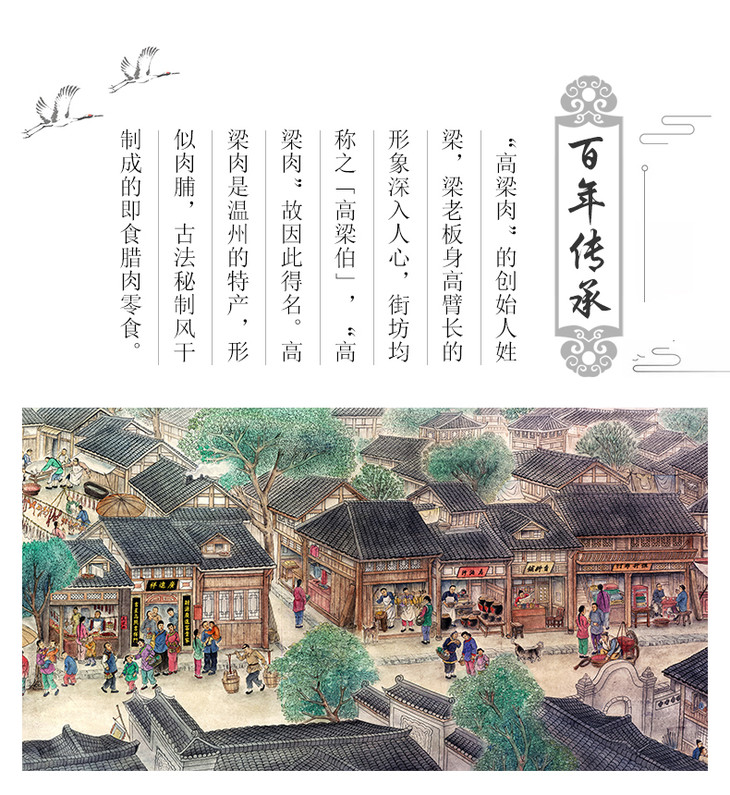 百年传承
“高梁肉”的创始人姓
梁，梁老板身高臂长的
形象深入人心，街坊均
称之「高梁伯」，“高
梁肉”故因此得名。高
梁肉是温州的特产，形
似肉脯，古法秘制风干
制成的即食腊肉零食。